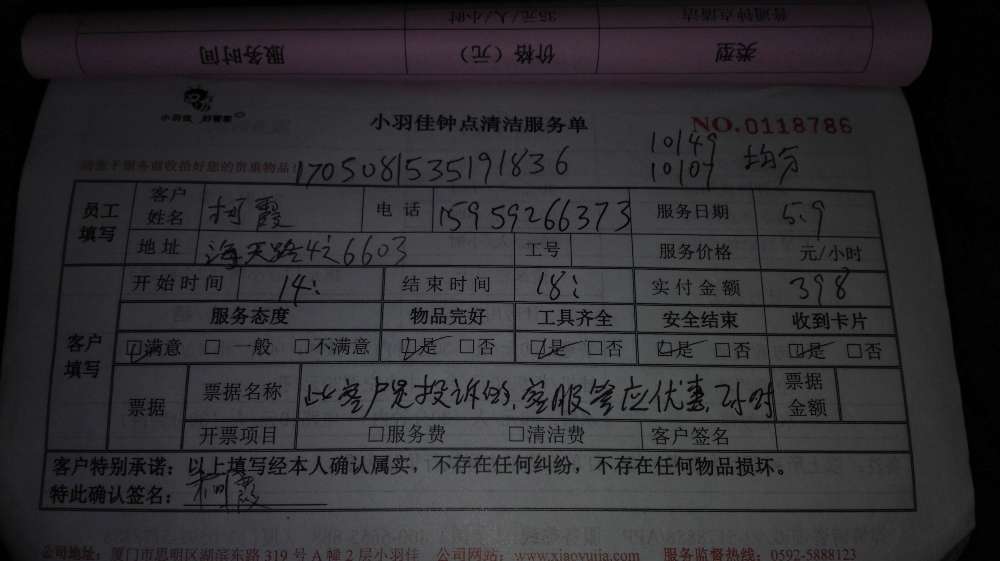 普通钟点清洁 35元/人/小时
类型 价格（元） 服务时间
小羽佳 好管家
小羽佳钟点清洁服务单 NO.0118786
10149
请在下服务前收拾好您的贵重物品! 1705081535191836 10107 均分
员工填写 客户姓名 柯霞 电话 15959266373 服务日期 5.9
地址 海天路4之6603 工号 服务价格 元/小时
客户填写 开始时间 14: 结束时间 18: 实付金额 398
服务态度 物品完好 工具齐全 安全结束 收到卡片
☑满意 □ 一般 □不满意 ☑是 □否 ☑是 □否 ☑是 □否 ☑是 □否
票据 票据名称 此客户是投诉的、客服答应优惠 票据金额
开票项目 □服务费 □清洁费 客户签名
客户特别承诺：以上填写经本人确认属实，不存在任何纠纷，不存在任何物品损坏。
特此确认签名： 柯霞
公司地址：厦门市思明区湖滨东路 319 号 A 幢 2 层小羽佳 公司网站：www.xiaoyujia.com 服务监督热线：0592-5888123